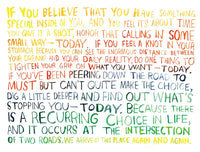 IF YOU BELIEVE THAT YOU HAVE SOMETHING
SPECIAL INSIDE OF YOU, AND YOU FEEL IT'S ABOUT TIME
YOU GIVE IT A SHOT, HONOR THAT CALLING IN SOME
SMALL WAY—TODAY. IF YOU FEEL A KNOT IN YOUR
STOMACH BECAUSE YOU CAN SEE THE ENORMOUS DISTANCE BETWEEN
YOUR DREAMS AND YOUR DAILY REALITY, DO ONE THING TO
TIGHTEN YOUR GRIP ON WHAT YOU WANT—TODAY.
IF YOU'VE BEEN PEERING DOWN THE ROAD TO
MUST BUT CAN'T QUITE MAKE THE CHOICE,
DIG A LITTLE DEEPER AND FIND OUT WHAT'S
STOPPING YOU—TODAY. BECAUSE THERE
IS A RECURRING CHOICE IN LIFE,
AND IT OCCURS AT THE INTERSECTION
OF TWO ROADS. WE ARRIVE AT THIS PLACE AGAIN AND AGAIN.